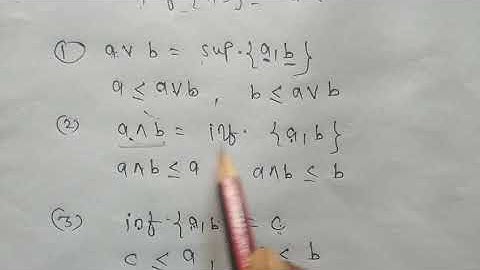 (1) a∨b = sup·{a,b}
a ≤ a∨b , b ≤ a∨b
(2) a∧b = inf· {a,b}
a∧b ≤ a a∧b ≤ b
(3) inf·{a,b} = c
c ≤ a, ≤ b